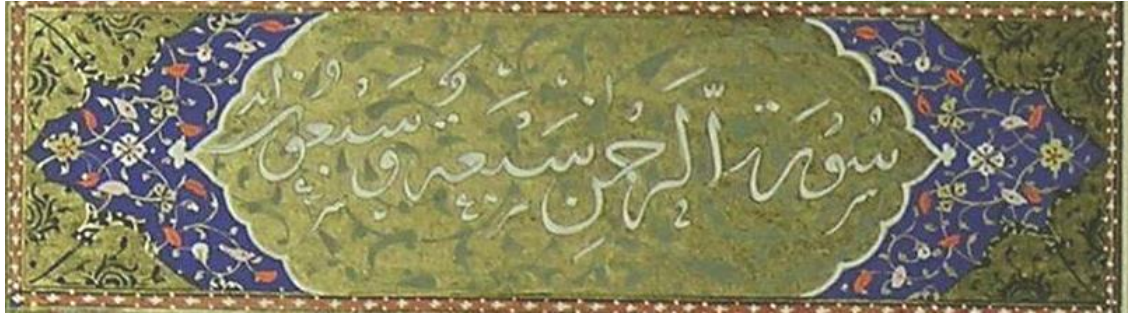 سُورَة الَرَّحمٰنِ سَبْعَة وَ سَبعُونَ اٰيَة